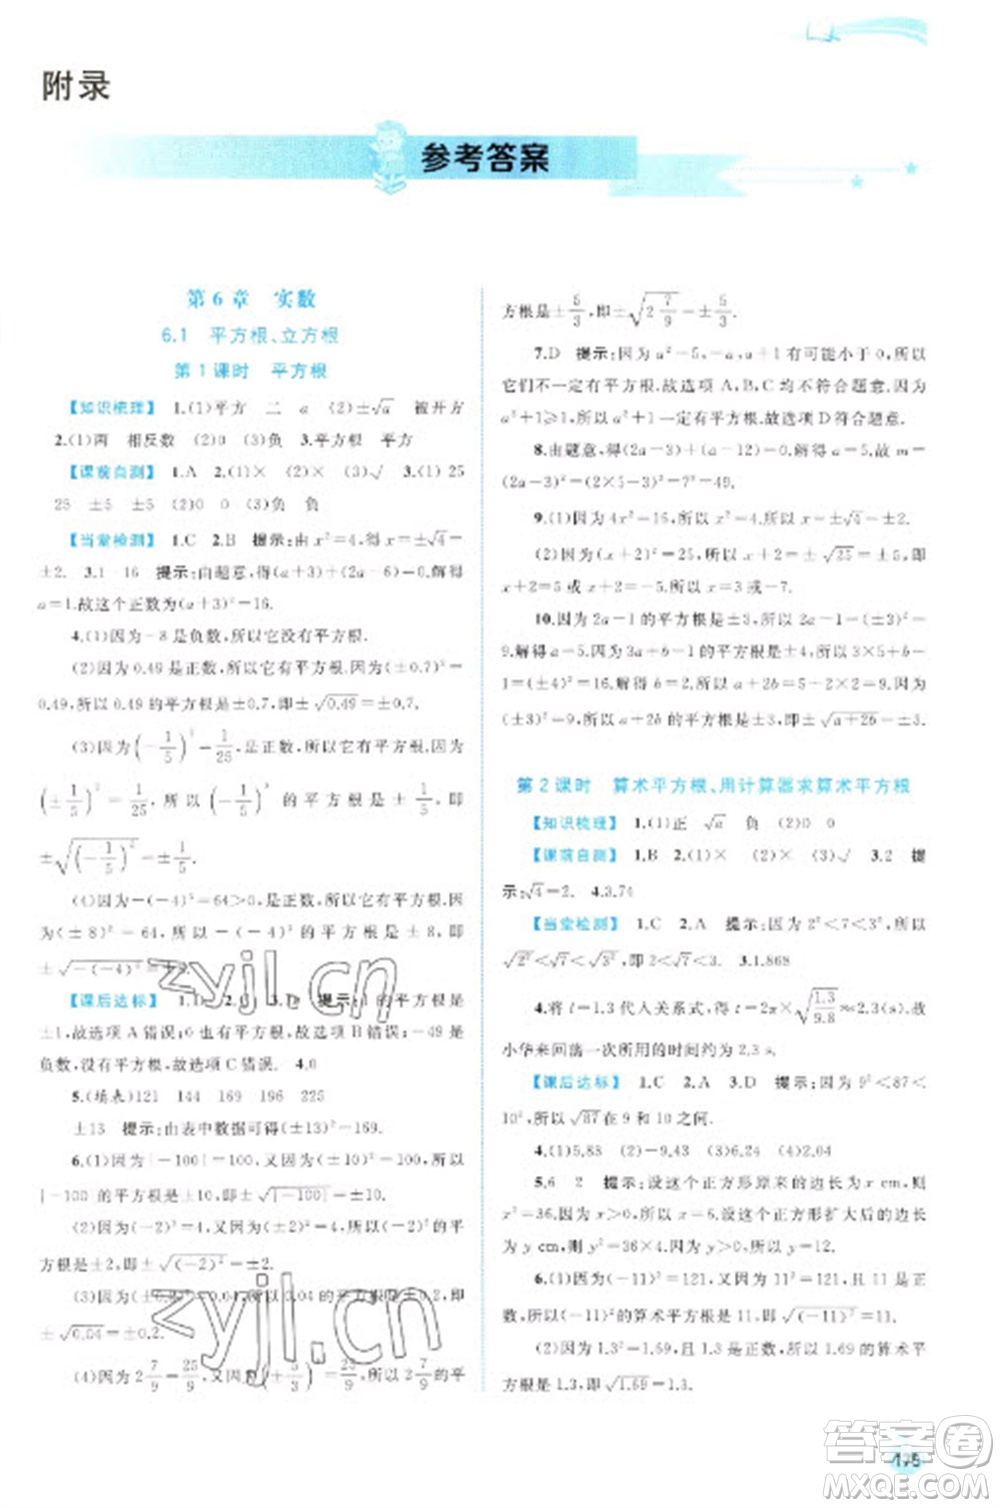 附录
参考答案
第6章 实数
6.1 平方根、立方根
第1课时 平方根
【知识梳理】 1.(1)平方 二 a (2)±√a 被开方
2.(1)两 相反数 (2)0 (3)负 3.平方根 平方
【课前自测】 1.A 2.(1)× (2)× (3)√ 3.(1)25
25 ±5 ±5 (2)0 0 (3)负 负
【当堂检测】 1.C 2.B 提示:由x²=4,解得x=
±2. 3.1 16 提示:由题意,得(a+3)+(2a-6)=0,解得
a=1.故这个正数为(a+3)²=16.
4.(1)因为-8是负数,所以它没有平方根.
(2)因为0.49是正数,所以它有平方根.因为(±0.7)²=
0.49,所以0.49的平方根是±0.7,即±√0.49=±0.7.
(3)因为(-1/5)²=1/25,是正数,所以它有平方根.因为
(±1/5)²=1/25,所以(-1/5)²的平方根是±1/5,即
±√(-1/5)²=±1/5.
(4)因为-(-4)³=64,是正数,所以它有平方根.
因为(±8)²=64,所以-(-4)³的平方根是±8,即
±√-(-4)³=±8.
【课后达标】 1.B 2.C 3.D 提示:1的平方根是
±1,故选项A错误;0也有平方根,故选项B错误;-49是
负数,没有平方根,故选项C错误. 4.0
5.(填表)121 144 169 196 225
±13 提示:由表中数据可得(±13)²=169.
6.(1)因为|-100|=100,又因为(±10)²=100,所以
|-100|的平方根是±10,即±√|-100|=±10.
(2)因为(-2)²=4,又因为(±2)²=4,所以(-2)²的平
方根是±2,即±√(-2)²=±2.
(3)因为(±0.2)²=0.04,所以0.04的平方根是±0.2,即
±√0.04=±0.2.
(4)因为2 7/9=25/9,又因为(±5/3)²=25/9,所以2 7/9的平
方根是±5/3,即±√2 7/9=±5/3.
7.D 提示:因为a²-5,-a,a+1有可能小于0,所以
它们不一定有平方根.故选项A,B,C均不符合题意.因为
a²+1≥1,所以a²+1一定有平方根.故选项D符合题意.
8.由题意,得(2a-3)+(2-a)... 解得a=5.故m=
(2a-3)²=(2×5-3)²=7²=49.
9.(1)因为4x²=16,所以x²=4.所以x=±√4=±2.
(2)因为(x+2)²=25,所以x+2=±√25=±5.所以
x+2=5或x+2=-5.所以x=3或x=-7.
10.因为2a-1的平方根是±3,所以2a-1=(±3)²=
9.解得a=5.因为3a+b-1的平方根是±4,所以3×5+b-
1=(±4)²=16.解得b=2.所以a+2b=5+2×2=9.因为
(±3)²=9,所以a+2b的平方根是±3,即±√a+2b=±3.
第2课时 算术平方根、用计算器求算术平方根
【知识梳理】 1.(1)正 √a 负 (2)0 0
【课前自测】 1.B 2.(1)× (2)× (3)√ 3.2 提
示:√4=2. 4.3.74
【当堂检测】 1.C 2.A 提示:因为2²<7<3²,所以
√2²<√7<√3²,即2<√7<3. 3.1.868
4.将l=1.3代入关系式,得t=2π×√1.3/9.8≈2.3(s).故
小华来回荡一次所用的时间约为2.3 s.
【课后达标】 1.C 2.A 3.D 提示:因为9²<87<
10²,所以√87在9和10之间.
4.(1)5.83 (2)-9.43 (3)6.24 (4)2.04
5.6 2 提示:设这个正方形原来的边长为x cm,得
x²=36.因为x>0,所以x=6.设这个正方形扩大后的边长
为y cm,则y²=36×4.因为y>0,所以y=12.
6.(1)因为(-11)²=121,又因为11²=121,且11是正
数,所以(-11)²的算术平方根是11,即√(-11)²=11.
(2)因为1.3²=1.69,且1.3是正数,所以1.69的算术平
方根是1.3,即√1.69=1.3.
175
zyjl.cn
zyjl.cn
答案圈
MXQE.COM